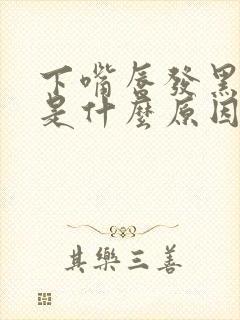 下嘴唇發黑
是什麼原因
其樂三善